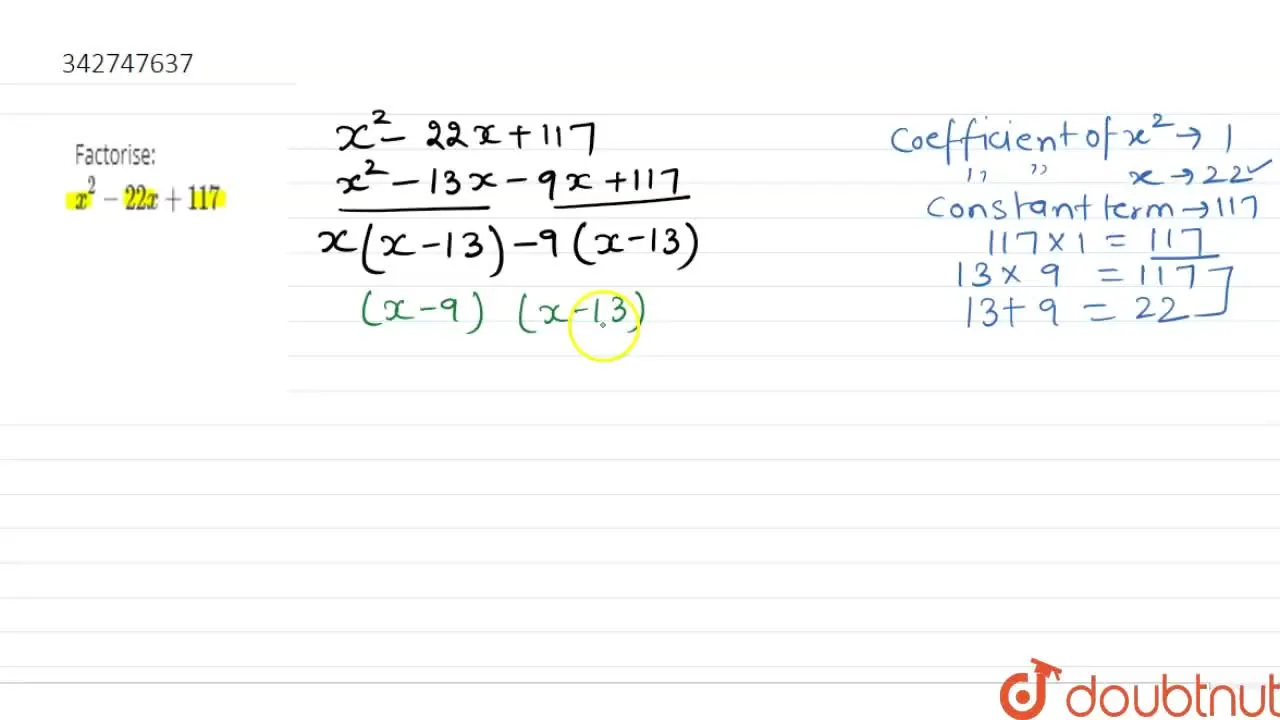 342747637
Factorise:
x² − 22x + 117
x² − 22x + 117
x² − 13x − 9x + 117
x(x − 13) − 9(x − 13)
(x − 9) (x − 13)
Coefficient of x² → 1
,, ,, x → 22✓
Constant term → 117
117 × 1 = 117
13 × 9 = 117
13 + 9 = 22
doubtnut